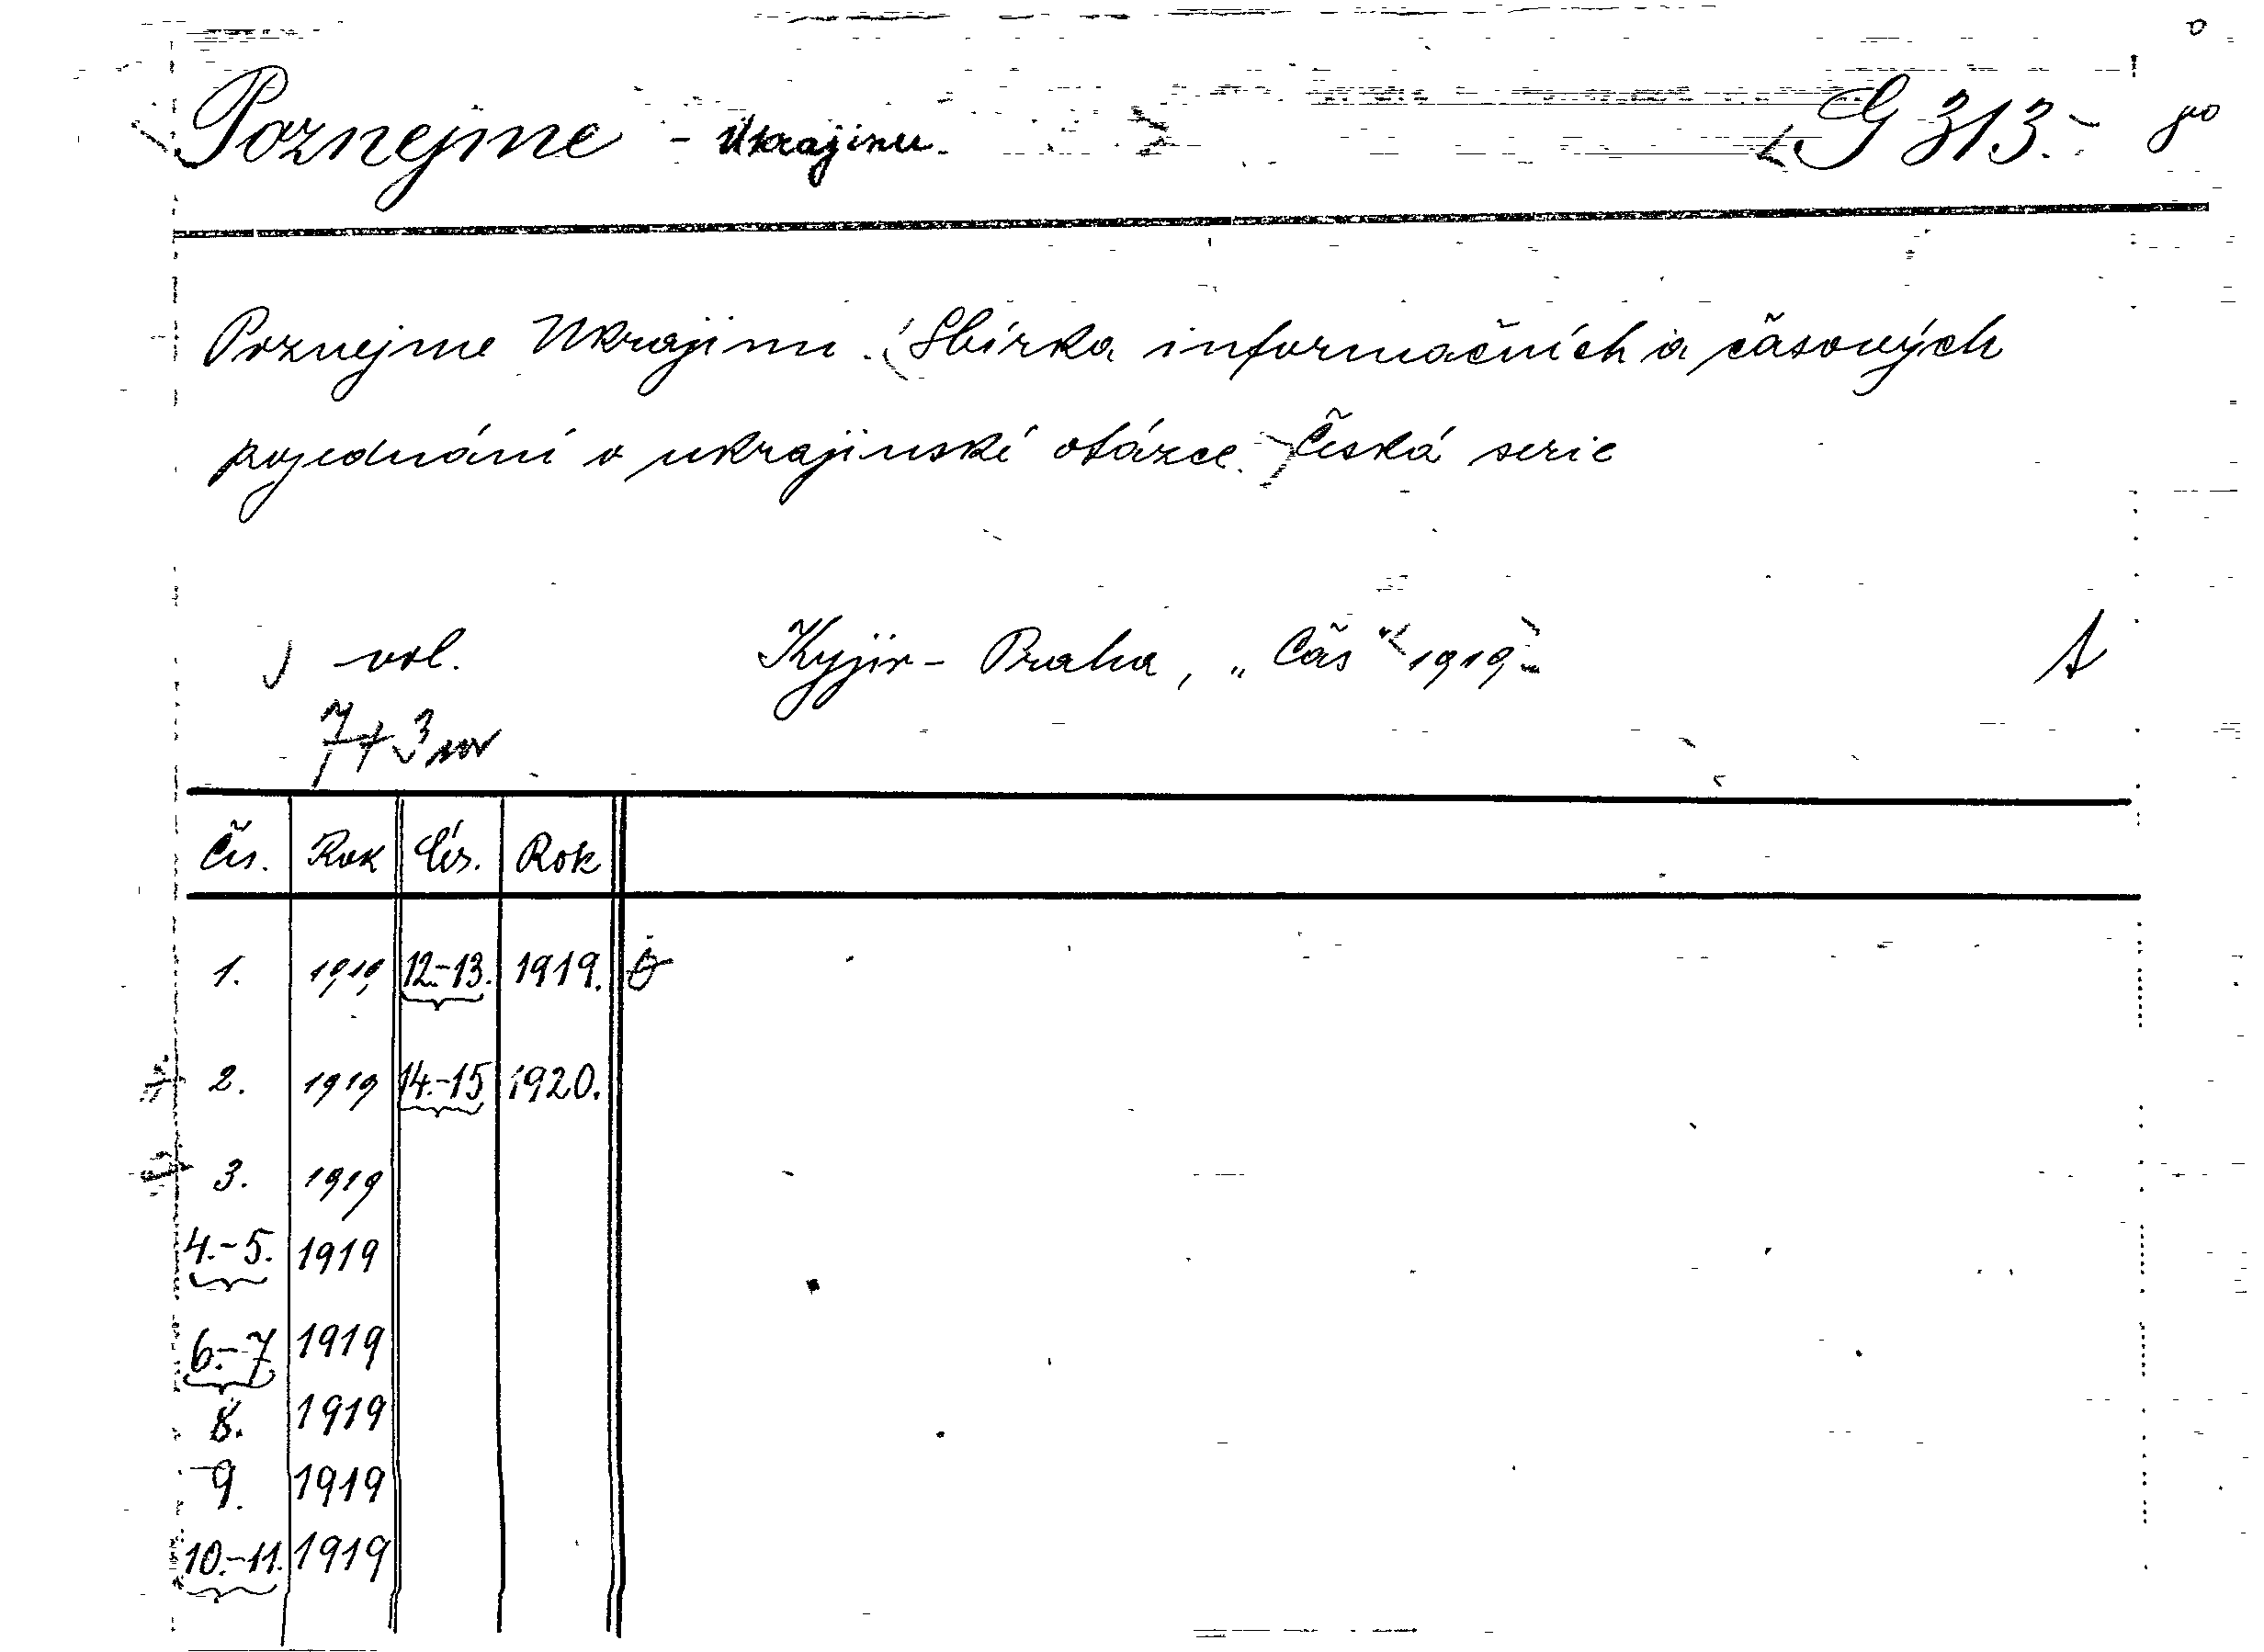 Poznejme - Ukrajinu. G 313.-
Poznejme Ukrajinu. (Sbírka informačních a časových
pojednání o ukrajinské otázce.) Česká serie
vol. Kyjiv - Praha, „Čas“ 1919 -
7 + 3
Čís. Rok Čís. Rok
1. 1919 12.-13. 1919.
2. 1919 14.-15 1920.
3. 1919
4.-5. 1919
6.-7. 1919
8. 1919
9. 1919
10.-11. 1919